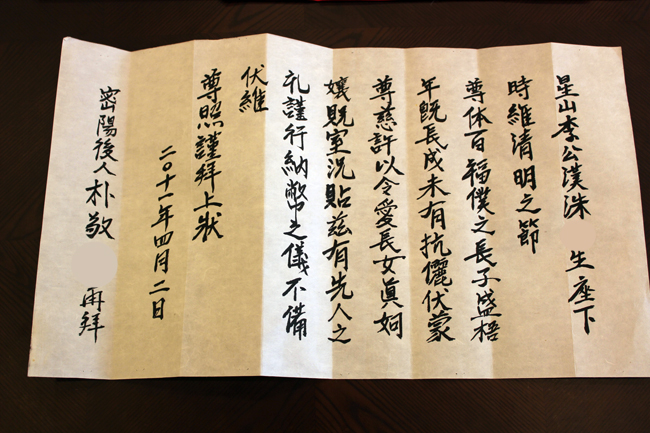 星山李公漢洙 生座下
時維清明之節
尊体百福僕之長子盛梧
年旣長成未有抗儷伏蒙
尊慈許以令愛長女眞妸
孃貺室洗貼玆有先人之
礼謹行納幣之儀不備
伏維
尊照謹拜上狀
二〇十一年四月二日
密陽後人朴敬 再拜